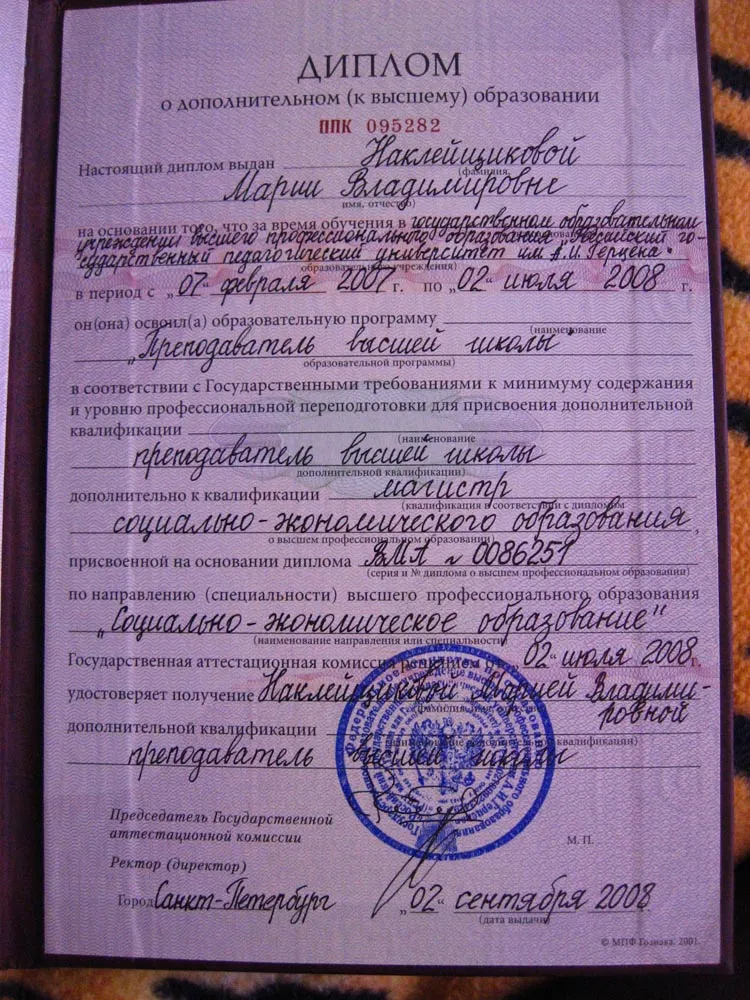 ДИПЛОМ
о дополнительном (к высшему) образовании
ППК 095282
Настоящий диплом выдан Наклейщиковой
(фамилия,
Марии Владимировне
имя, отчество)
на основании того, что за время обучения в государственном образовательном
учреждении высшего профессионального образования „Российский го-
сударственный педагогический университет им. А.И. Герцена"
образовательного учреждения)
в период с „07" февраля 2007 г. по „02" июля 2008 г.
он(она) освоил(а) образовательную программу
(наименование
„Преподаватель высшей школы"
образовательной программы)
в соответствии с Государственными требованиями к минимуму содержания
и уровню профессиональной переподготовки для присвоения дополнительной
квалификации
(наименование
преподаватель высшей школы
дополнительной квалификации)
дополнительно к квалификации магистр
(квалификация в соответствии с дипломом
социально-экономического образования,
о высшем профессиональном образовании)
присвоенной на основании диплома ВМА № 0086251
(серия и № диплома о высшем профессиональном образовании)
по направлению (специальности) высшего профессионального образования
„Социально-экономическое образование"
(наименование направления или специальности)
Государственная аттестационная комиссия решением от 02 июля 2008 г.
удостоверяет получение Наклейщиковой Марией Владими-
ровной
дополнительной квалификации
преподаватель высшей школы
Председатель Государственной
аттестационной комиссии
М. П.
Ректор (директор)
Город Санкт-Петербург „02" сентября 2008
(дата выдачи)
© МПФ Гознака. 2001.